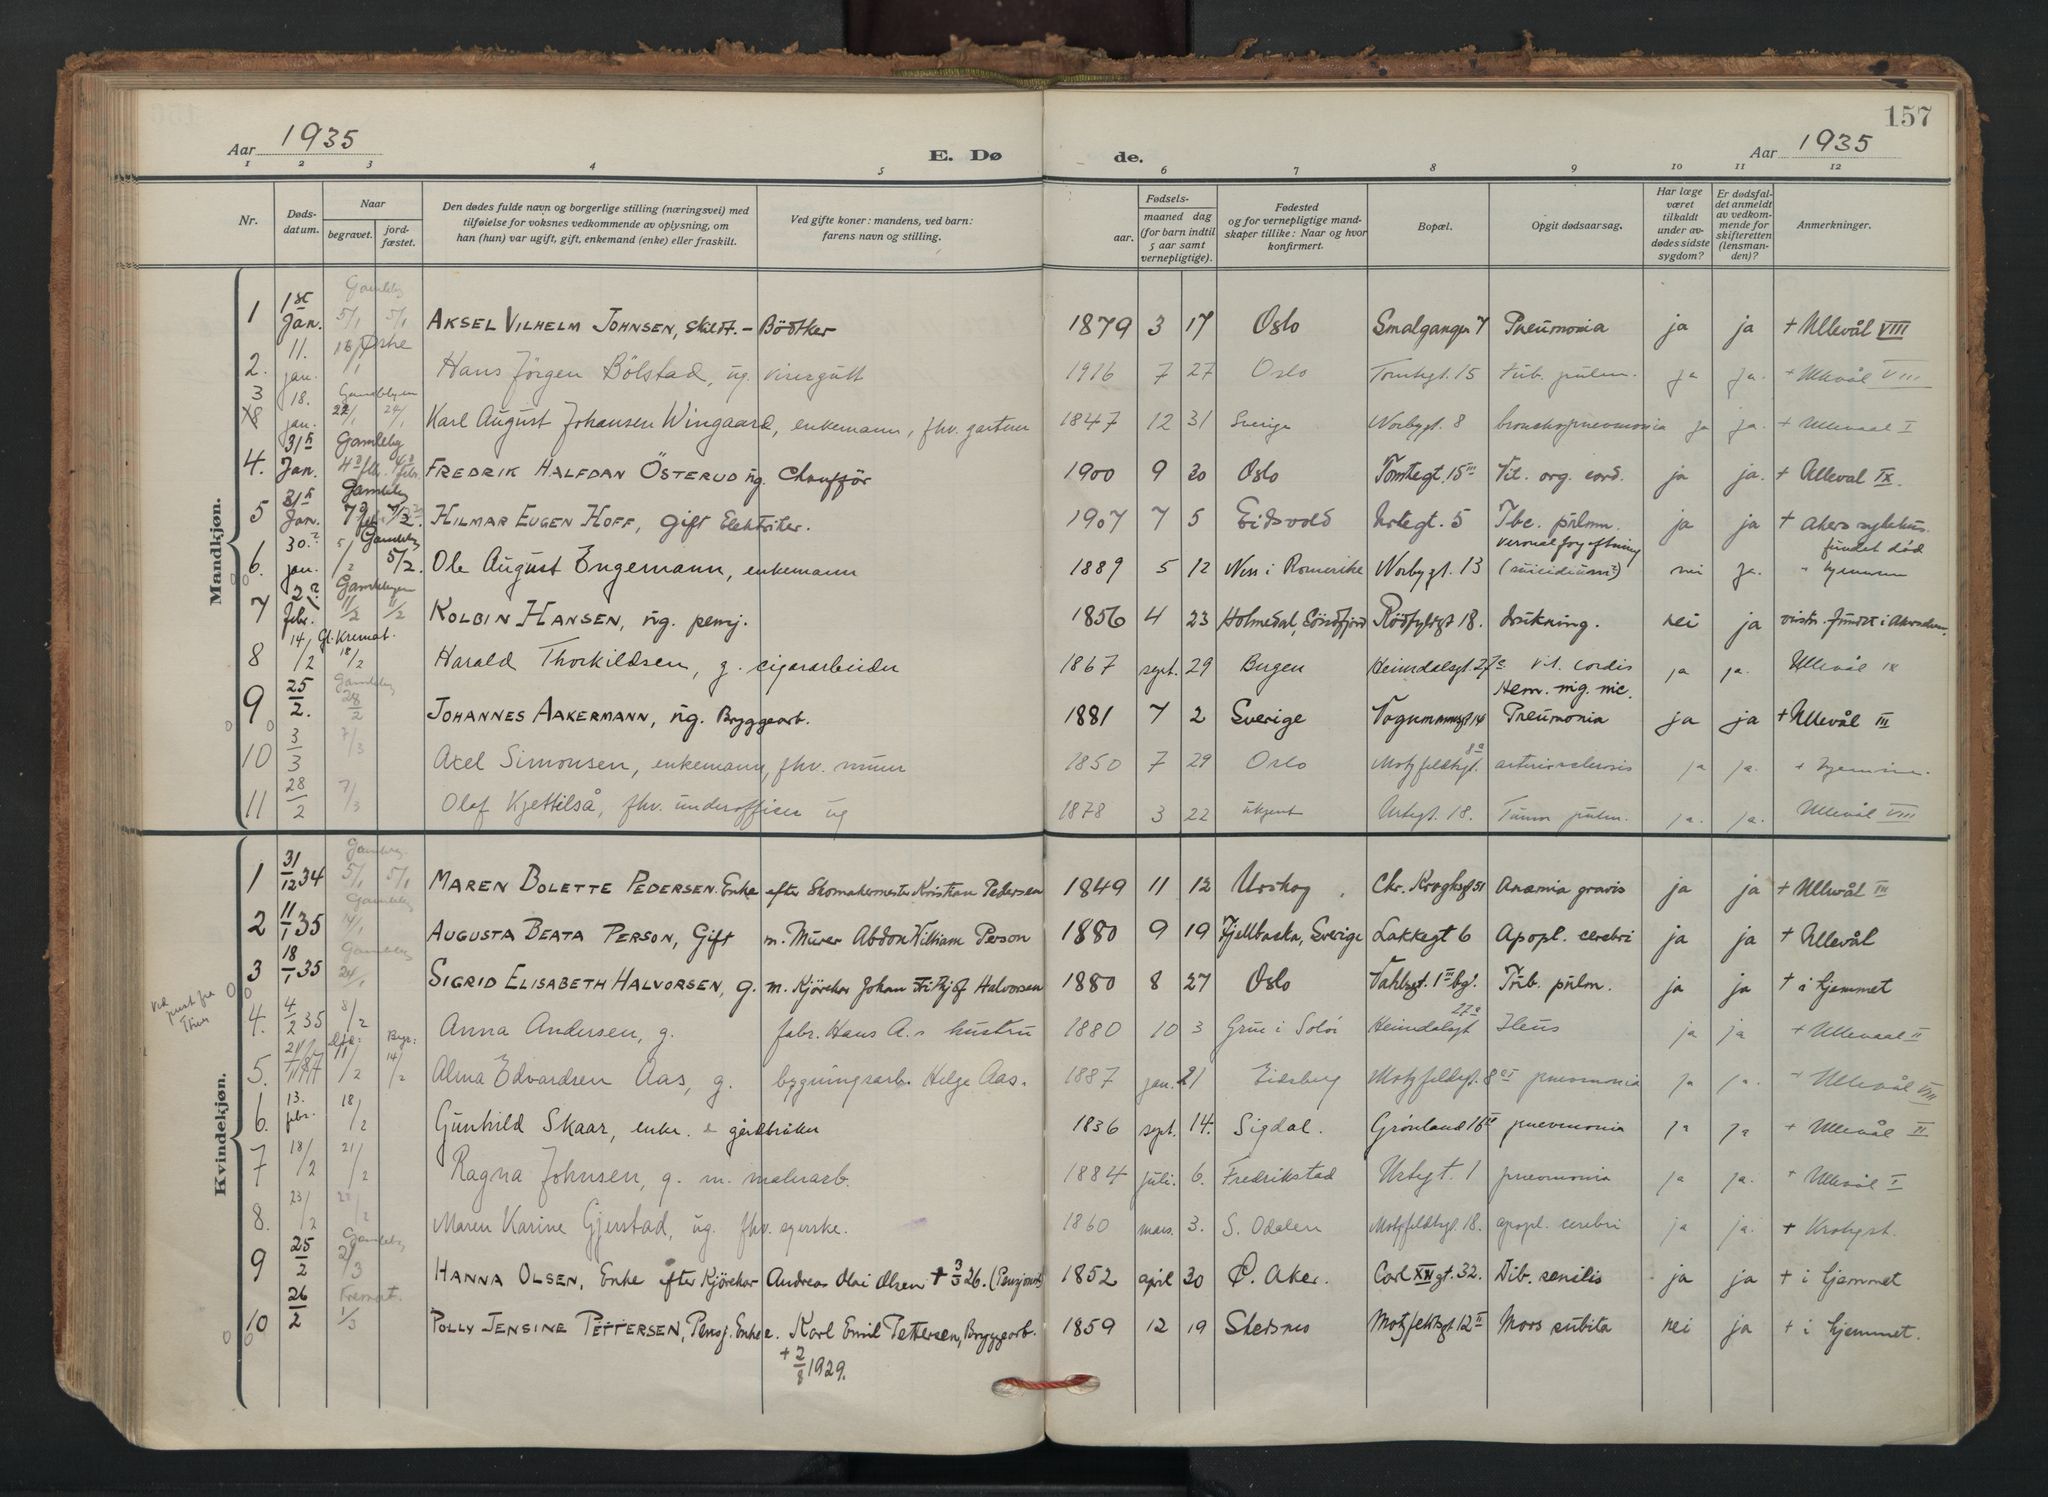 157
Aar 1935
E. Dø
de.
Aar 1935
1 2 3 4 5 6 7 8 9 10 11 12
Nr.
Døds-
datum.
Naar
begravet.
jord-
fæstet.
Den dødes fulde navn og borgerlige stilling (næringsvei) med
tilføielse for voksnes vedkommende av oplysning, om
han (hun) var ugift, gift, enkemand (enke) eller fraskilt.
Ved gifte koner: mandens, ved barn:
farens navn og stilling.
Fødsels-
aar.
maaned dag
(for barn indtil
5 aar samt
vernepligtige).
Fødested
og for vernepligtige mand-
skaper tillike: Naar og hvor
konfirmert.
Bopæl.
Opgit dødsaarsag.
Har læge
været
tilkaldt
under av-
dødes sidste
sygdom?
Er dødsfal-
det anmeldt
av vedkom-
mende for
skifteretten
(lensman-
den)?
Anmerkninger.
Mandkjøn.
Gamleby
1 1ste Jan. 5/1 5/1 AKSEL VILHELM JOHNSEN, skildt. - Bödtker 1879 3 17 Oslo Smalgangen 7 Pneumonia ja ja + Ullevål VIII
2. 11. jan. 16/1 Østre Hans Jörgen Bölstad, ug. visergutt 1916 7 27 Oslo Tomtegt. 15 tub. pulm. ja ja. + Ullevål VIII
Gamlebyen
3 18. jan. 22/1 24/1 Karl August Johansen Wingaard, enkemann, fhv. gartner 1847 12 31 Sverige Norbygt. 8 bronchopneumonia ja ja. + Ullevaal I
Gamleby
4. 31te Jan. FREDRIK HALFDAN ÖSTERUD ug. Chaufför 1900 9 20 Oslo Tomtegt. 15 III Vit. org. cord. ja ja. + Ulleval IX.
Gamleby
5 31te Jan. 7/2. HILMAR EUGEN HOFF, gift Elektriker. 1907 7 5 Eidsvold Urtegt. 5 Tbc. pulm. ja ja + Akers sykehus.
Gamleby
6. 30. jan. 5/2 5/2. Ole August Engemann, enkemann 1889 5 12 Nes i Romerike Norbygt. 13 Veronalforgiftning (suicidium?) nei ja. fundet död i hjemmet
Gamlebyen
7 2? febr. 11/2 11/2 KOLBIN HANSEN, ug. pensj. 1856 4 23 Holmedal, Söndfjord Rödfyldgt 18. drukning. nei ja fundet i Akerselven.
Gl. Kremat.
8 14/2 18/2 Harald Thorkildsen, g. cigararbeider 1867 sept. 29 Bergen Heimdalsgt. 27 c vit. cordis ja ja. Ullevål IX
Gamleby
9 25/2. 28/2 JOHANNES AAKERMANN, ug. Bryggearb. 1881 7 2 Sverige 14 Pneumonia ja ja + Ullevål III
10 3/3 7/3 Axel Simonsen, enkemann, fhv. murer 1850 7 29 Oslo Motzfeldtgt. 8a arteriosclerosis ja ja. + hjemme.
11 28/2 7/3 Olaf Kjettilså, fhv. underofficer ug 1878 3 22 ukjent Urtegt. 18. Tumor pulm. ja. ja. Ullevål VIII
Kvindekjøn.
Gamleby.
1 31/12 34 5/1 5/1 MAREN BOLETTE PEDERSEN. Enke efter Skomakermester Kristian Pedersen 1849 11 12 Urskog Chr. Kroghsgt 51 Anæmia gravis ja ja + Ullevål III
Gamleby
2 11/1 35 14/1 AUGUSTA BEATA PERSON, Gift m. Murer Abdon William Person 1880 9 19 Fjellbacka, Sverige Lakkegt 6 Apopl. cerebri ja ja + Ullevål
Gamleby
3 18/1 35 24/1 SIGRID ELISABETH HALVORSEN, g. m. Kjörekar Johan Fritkjof Halvorsen 1880 8 27 Oslo Vahlsgt. 1 III bg. Tub. pulm. ja ja + i hjemmet
4. 4/2 35 8/2 Anna Andersen, g. fabr. Hans A.s hustru 1880 10 3 Grue i Solör Heimdalsgt 27a Ileus ja ja + Ullevaal II
5. 11/2 14/2 Alma Edvardsen Aas, g. bygningsarb. Helge Aas. 1887 jan. 21 Eidsberg Motzfeldtgt. 8 pneumonia ja ja. + Ullevål VIII
6. 13. febr. 18/2 Gunhild Skaar, enke e gårdbruker 1836 sept. 14. Sigdal. Grønland 16 pneumonia ja ja + Ullevål II
7 18/2 21/2 Ragna Johnsen, g. m. malerarb. 1884 juli. 6. Fredrikstad Urtegt. 1 pneumonia ja ja. + Ullevål I
8. 23/2 28/2 Maren Karine Gjerstad, ug. fhv. syerske. 1860 mars. 3. S. Odalen Motzfeldtgt. 18. apopl. cerebri ja ja. + Krohgst.
Gamleby
9 25/2 2/3 HANNA OLSEN, Enke efter Kjörekar Andreas Olai Olsen + 3/3 26. (Pensjonist) 1852 april 20 Ø. Aker. Carl XII gt. 32. Dib. senilis ja ja + i hjemmet
Kremat.
10 26/2 1/3 POLLY JENSINE PETTERSEN, Pensj. Enke e. Karl Emil Pettersen, Bryggearb. 1859 12 19 Skedsmo Motzfeldtgt 12 II Mors subita nei ja + i hjemmet.
+ 2/8 1929.